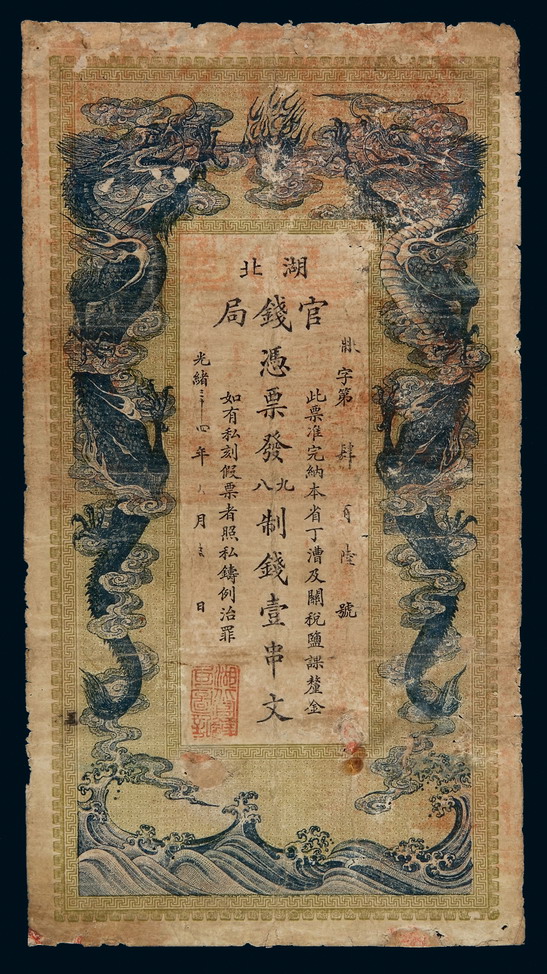 湖北
官錢局
字第肆百陸號
此票准完納本省丁漕及關稅鹽課釐金
憑票發九八制錢壹串文
如有私刻假票者照私鑄例治罪
光緒三十四年八月 日